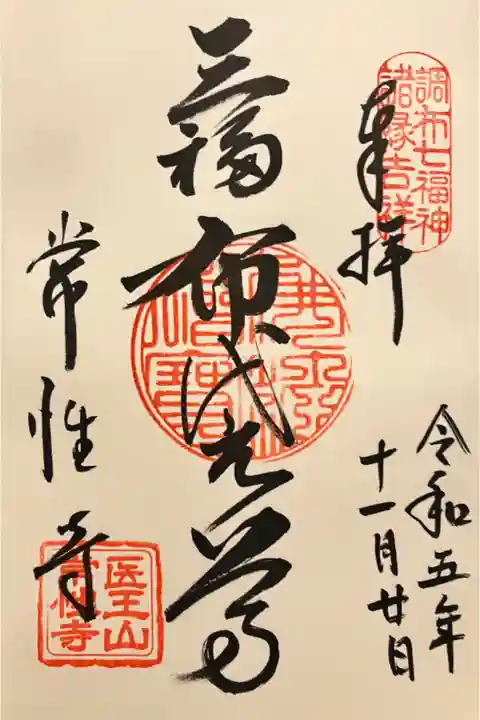 調布七福神
諸縁吉祥
奉拝
令和五年
十一月廿日
三福
布袋尊
常性寺
医王山
常性寺